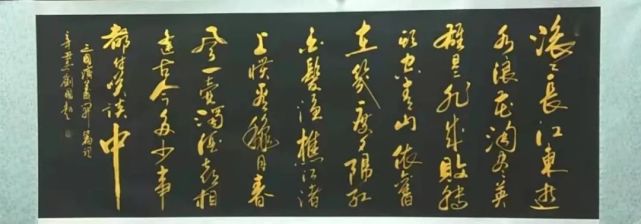 滚〻長江東逝
水浪花淘尽英
雄是非成敗轉
頭空青山依舊
在幾度夕陽紅
白髮漁樵江渚
上慣看秋月春
風一壺濁酒喜相
逢古今多少事
都付笑談中
三國演義開篇詞
劉國